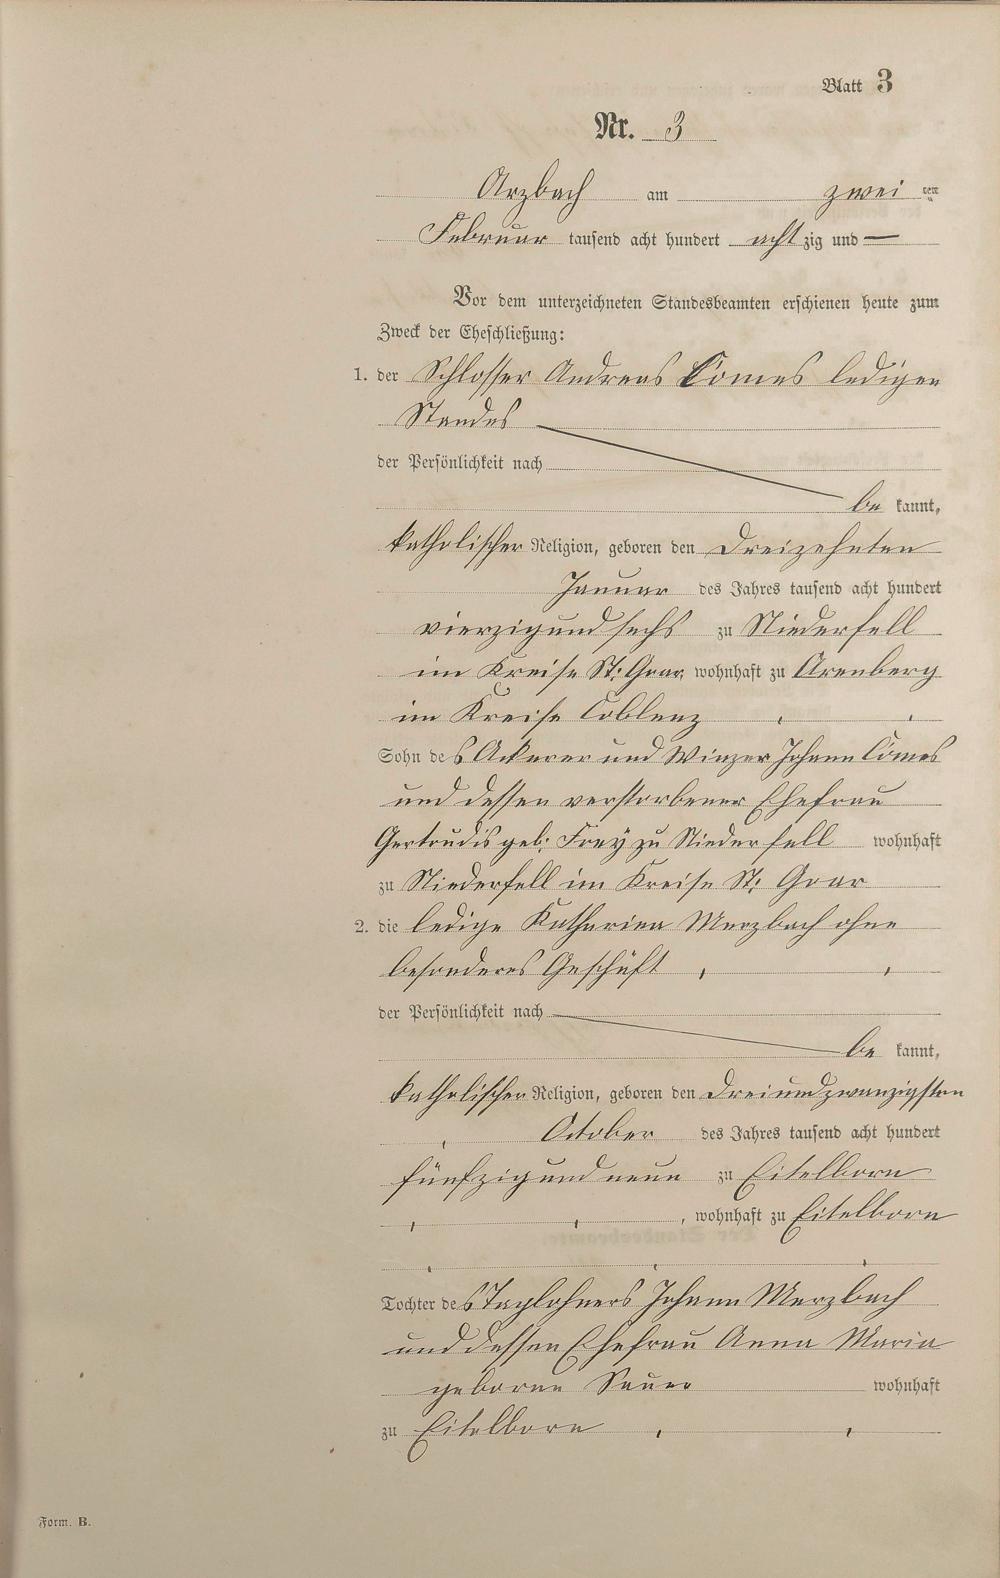 Blatt 3
Nr. 3
Arzbach am zwei ten
Februar tausend acht hundert acht zig und —
Vor dem unterzeichneten Standesbeamten erschienen heute zum
Zweck der Eheschließung:
1. der Schlosser Andreas Cömes ledigen
Standes
der Persönlichkeit nach
be kannt,
katholischer Religion, geboren den Dreizehnten
Januar des Jahres tausend acht hundert
vierzig und sechs zu Niederfell
im Kreise St: Goar, wohnhaft zu Arenberg
im Kreise Coblenz
Sohn des Ackerer und Winzer Johann Cömes
und dessen verstorbener Ehefrau
Gertrudis geb: Frey zu Niederfell wohnhaft
zu Niederfell im Kreise St: Goar
2. die ledige Katharina Merzbach ohne
besonderes Geschäft
der Persönlichkeit nach
be kannt,
katholischer Religion, geboren den Dreiundzwanzigsten
October des Jahres tausend acht hundert
fünfzig und neun zu Eitelborn
, wohnhaft zu Eitelborn
Tochter des Taglohners Johann Merzbach
und dessen Ehefrau Anna Maria
geborne Sauer wohnhaft
zu Eitelborn
Form. B.